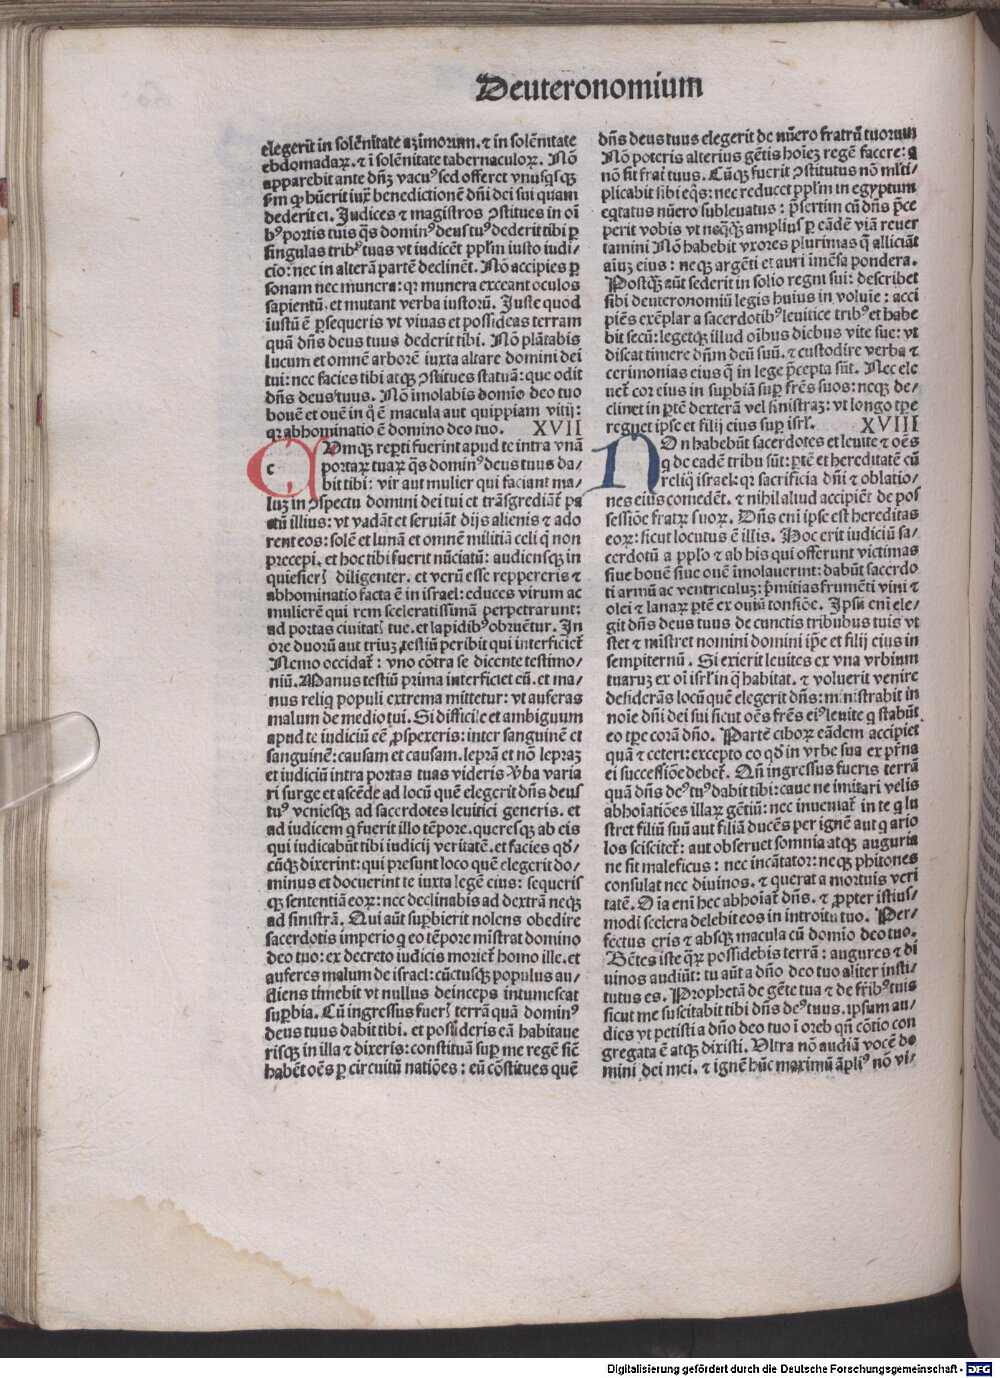 Deuteronomium
elegerit in solēnitate azimorum. ⁊ in solēnitate
ebdomadaꝝ. ⁊ ī solēnitate tabernaculoꝝ. Nō
apparebit ante dn̄ꝫ vacuꝰ sed offeret vnusqͥsqꝫ
ẜm qͥ hūerit iuxͣ benedictionē dn̄i dei sui quam
dederit ei. Judices ⁊ magistros ꝯstitues in oī
bꝰ portis tuis qͣs dominꝰ deus tuꝰ dederit tibi ꝑ
singulas tribꝰ tuas vt iudicēt pplm̄ iusto iudi/
cio: nec in alterā partē declinēt. Nō accipies ꝑ
sonam nec munera: qꝛ munera exceant oculos
sapientū. et mutant verba iustorū. Juste quod
iustū ē ꝑsequeris vt viuas et possideas terram
quā dn̄s deus tuus dederit tibi. Nō plātabis
lucum et omnē arborē iuxta altare domini dei
tui: nec facies tibi atqꝫ ꝯstitues statuā: que odit
dn̄s deus tuus. Nō imolabis domīo deo tuo
bouē et ouē in qͦ ē macula aut quippiam vitij:
qꝛ abhominatio ē domino deo tuo. XVII
c Umqꝫ reperti fuerint apud te intra vnā
portaꝝ tuaꝝ qͣs dominꝰ deus tuus da/
bit tibi: vir aut mulier qui faciant ma/
luꝫ in ꝯspectu domini dei tui et trāsgrediāt᷑ pa
ctū illius: vt vadāt et seruiāt dijs alienis ⁊ ado
rent eos: solē et lunā et omnē militiā celi qͥ non
precepi. et hoc tibi fuerit nūciatū: audiensqꝫ in
quiesierꝭ diligenter. et verū esse reppereris ⁊
abhominatio facta ē in israel: educes virum ac
mulierē qui rem sceleratissimā perpetrarunt:
ad portas ciuitatꝭ tue. et lapidibꝰ obruētur. In
ore duorū aut triuꝫ testiū peribit qui interficiet᷑
Nemo occidat᷑: vno cōtra se dicente testimo/
niū. Manus testiū prima interficiet eū. et ma/
nus reliq̄ populi extrema mittetur: vt auferas
malum de medio tui. Si difficile et ambiguum
apud te iudiciū eē ꝓspexeris: inter sanguinē et
sanguinē: causam et causam. leprā et nō lepraꝫ
et iudiciū intra portas tuas videris v̓ba varia
ri surge et ascēde ad locū quē elegerit dn̄s deus
tuꝰ veniesqꝫ ad sacerdotes leuitici generis. et
ad iudicem qͥ fuerit illo tēpore. queresqꝫ ab eis
qui iudicabūt tibi iudicij veritatē. et facies qd̄/
cūqꝫ dixerint: qui presunt loco quē elegerit do/
minus et docuerint te iuxta legē eius: sequeris
qꝫ sententiā eoꝝ: nec declinabis ad dextrā neqꝫ
ad sinistrā. Qui aūt suꝑbierit nolens obedire
sacerdotis imperio qͥ eo tēpore mīstrat domino
deo tuo: ex decreto iudicis moriet᷑ homo ille. et
auferes malum de israel: cūctusqꝫ populus au/
diens timebit vt nullus deinceps intumescat
suꝑbia. Cū ingressus fuerꝭ terrā quā dominꝰ
deus tuus dabit tibi. et possideris eā habitaue
risqꝫ in illa ⁊ dixeris: constituā suꝑ me regē sic̄
habēt oēs ꝑ circuitū natiōes: eū cōstitues quē
dn̄s deus tuus elegerit de nūero fratrū tuorum
Nō poteris alterius gētis hoīeꝫ regē facere: qͥ
nō sit frater tuus. Cūqꝫ fuerit ꝯstitutus nō ml̄ti/
plicabit sibi eqͦs: nec reducet pplm̄ in egyptum
eqͥtatus nūero subleuatus: p̄sertim cū dn̄s p̄ce
perit vobis vt neqͣqꝫ amplius ꝑ eādē viā reuer
tamini Nō habebit vxores plurimas qͣ alliciāt
aīuꝫ eius: neqꝫ argēti et auri īmēsa pondera.
Postqͣꝫ aūt sederit in solio regni sui: describet
sibi deuteronomiū legis huius in voluie: acci
piēs exēplar a sacerdotibꝰ leuitice tribꝰ et habe
bit secū: legetqꝫ illud oībus diebus vite sue: vt
discat timere dn̄m deū suū. ⁊ custodire verba ⁊
cerimonias eius qͥ in lege p̄cepta sūt. Nec ele
uet᷑ cor eius in suꝑbiā suꝑ fr̄es suos: neqꝫ de/
clinet in ꝑtē dexterā vel sinistraꝫ: vt longo tꝑe
regnet ipse et filij eius suꝑ isrl̄. XVIII
N On habebūt sacerdotes et leuite ⁊ oēs
qͥ de eadē tribu sūt: ꝑtē et hereditatē cū
reliqͦ israel: qꝛ sacrificia dn̄i ⁊ oblatio/
nes eius comedēt. ⁊ nihil aliud accipiēt de pos
sessiōe fratꝝ suoꝝ. Dn̄s eni ipse est hereditas
eoꝝ: sicut locutus ē illis. Hoc erit iudiciū sa/
cerdotū a pplo ⁊ ab his qui offerunt victimas
siue bouē siue ouē īmolauerint: dabūt sacerdo
ti armū ac ventriculuꝫ: p̄mitias frumēti vini ⁊
olei ⁊ lanaꝝ ꝑtē ex ouiū tonsiōe. Ipsū eni ele/
git dn̄s deus tuus de cunctis tribubus tuis vt
stet ⁊ mīstret nomini domini ip̄e et filij eius in
sempiternū. Si exierit leuites ex vna vrbium
tuaruꝫ ex oī isrl̄ in qͣ habitat. ⁊ voluerit venire
desiderās locū quē elegerit dn̄s: ministrabit in
noīe dn̄i dei sui sicut oēs fr̄es eiꝰ leuite qͥ stabūt
eo tꝑe corā dn̄o. Partē ciboꝝ eādem accipiet
quā ⁊ ceteri: excepto eo qd̄ in vrbe sua ex pr̄na
ei successiōe debet᷑. Qn̄ ingressus fueris terrā
quā dn̄s deꝰ tuꝰ dabit tibi: caue ne imitari velis
abhoiatiōes illaꝝ gētiū: nec inueniat᷑ in te qͥ lu
stret filiū suū aut filiā ducēs per ignē aut qͥ ario
los sciscitet᷑: aut obseruet somnia atqꝫ auguria
ne sit maleficus: nec incātator: neqꝫ phitones
consulat nec diuinos. ⁊ querat a mortuis veri
tatē. Oīa eni hec abhoiat᷑ dn̄s. ⁊ ꝓpter istius/
modi scelera delebit eos in introitu tuo. Per/
fectus eris ⁊ absqꝫ macula cū domīo deo tuo.
Gētes iste qͣꝝ possidebis terrā: augures ⁊ di
uinos audiūt: tu aūt a dn̄o deo tuo aliter insti/
tutus es. Prophetā de gēte tua ⁊ de fr̄ibꝰ tuis
sicut me suscitabit tibi dn̄s deꝰ tuus. ipsum au/
dies vt petisti a dn̄o deo tuo ī oreb qn̄ cōtio con
gregata ē atqꝫ dixisti. Ultra nō audiā vocē do
mini dei mei. ⁊ ignē hūc maximū āpliꝰ nō vi/
Digitalisierung gefördert durch die Deutsche Forschungsgemeinschaft - DFG